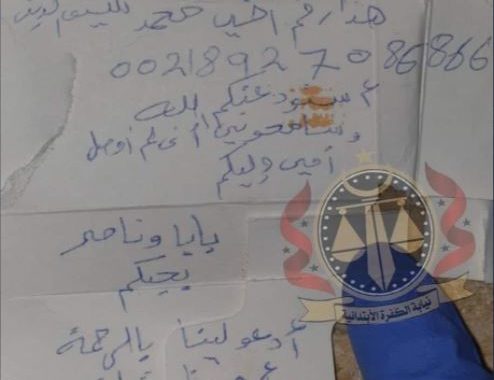 هذا رقم اخي محمد
0021892 7086866
أستودعتكم الله
وسامحوني أني لم أوصل
أمي وليكم
بابا وناصر
يحبكم
أدعو لينا بالرحمة
نيابة الكفرة الابتدائية